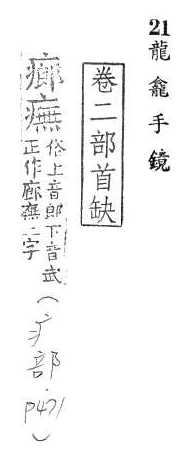 21龍龕手鏡
卷二部首缺
𤺧𤻎俗上音郎下音武
正作廊廡二字
(疒部.P471)